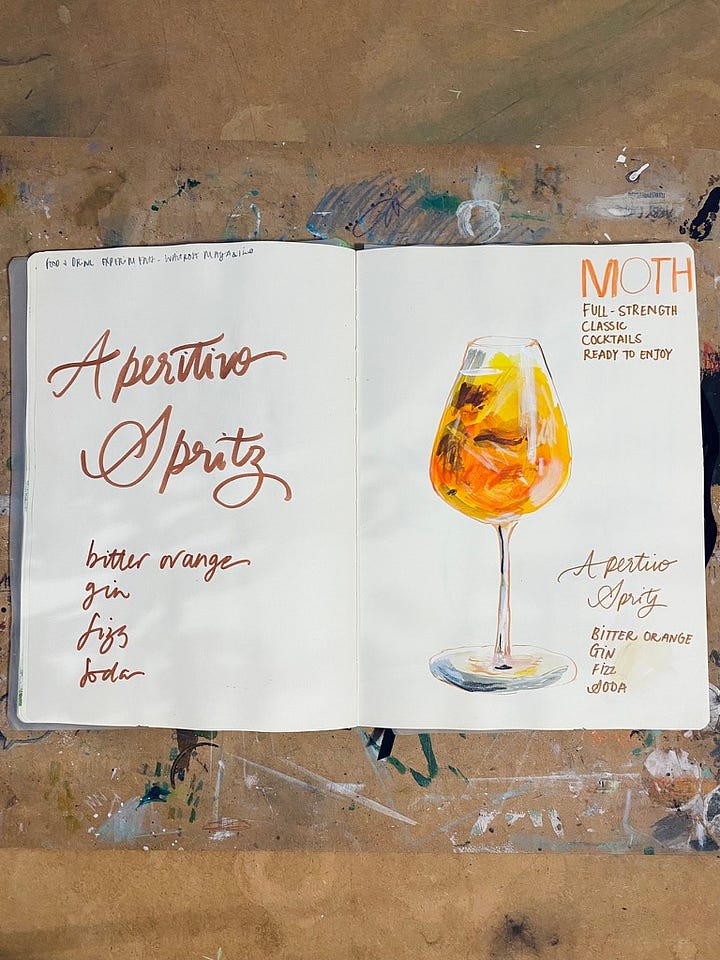 FOOD + DRINK EXPERIMENTS - WAITROSE MAGAZINE
Aperitivo
Spritz
bitter orange
gin
fizz
soda
MOTH
FULL-STRENGTH
CLASSIC
COCKTAILS
READY TO ENJOY
Apertivo
Spritz
BITTER ORANGE
GIN
FIZZ
SODA